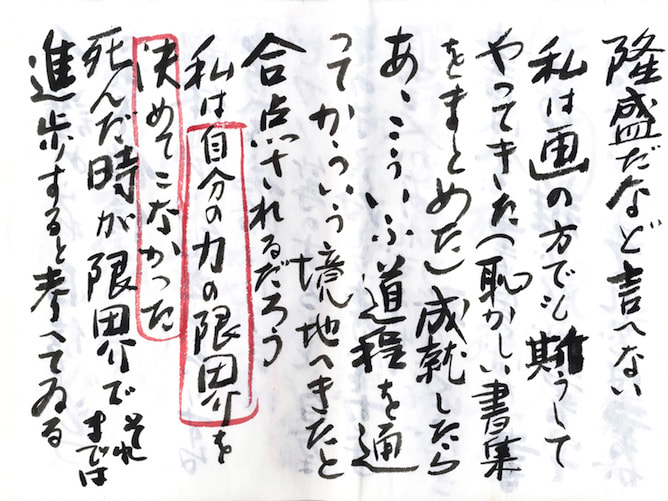 隆盛だなど言へない
私は画の方でも斯うして
やってきた（恥かしい書集
をまとめた）成就したら
あゝこういふ道程を通
ってかういう境地へきたと
合点されるだろう
私は自分の力の限界を
決めてこなかった
死んだ時が限界でそれまでは
進歩すると考へてゐる